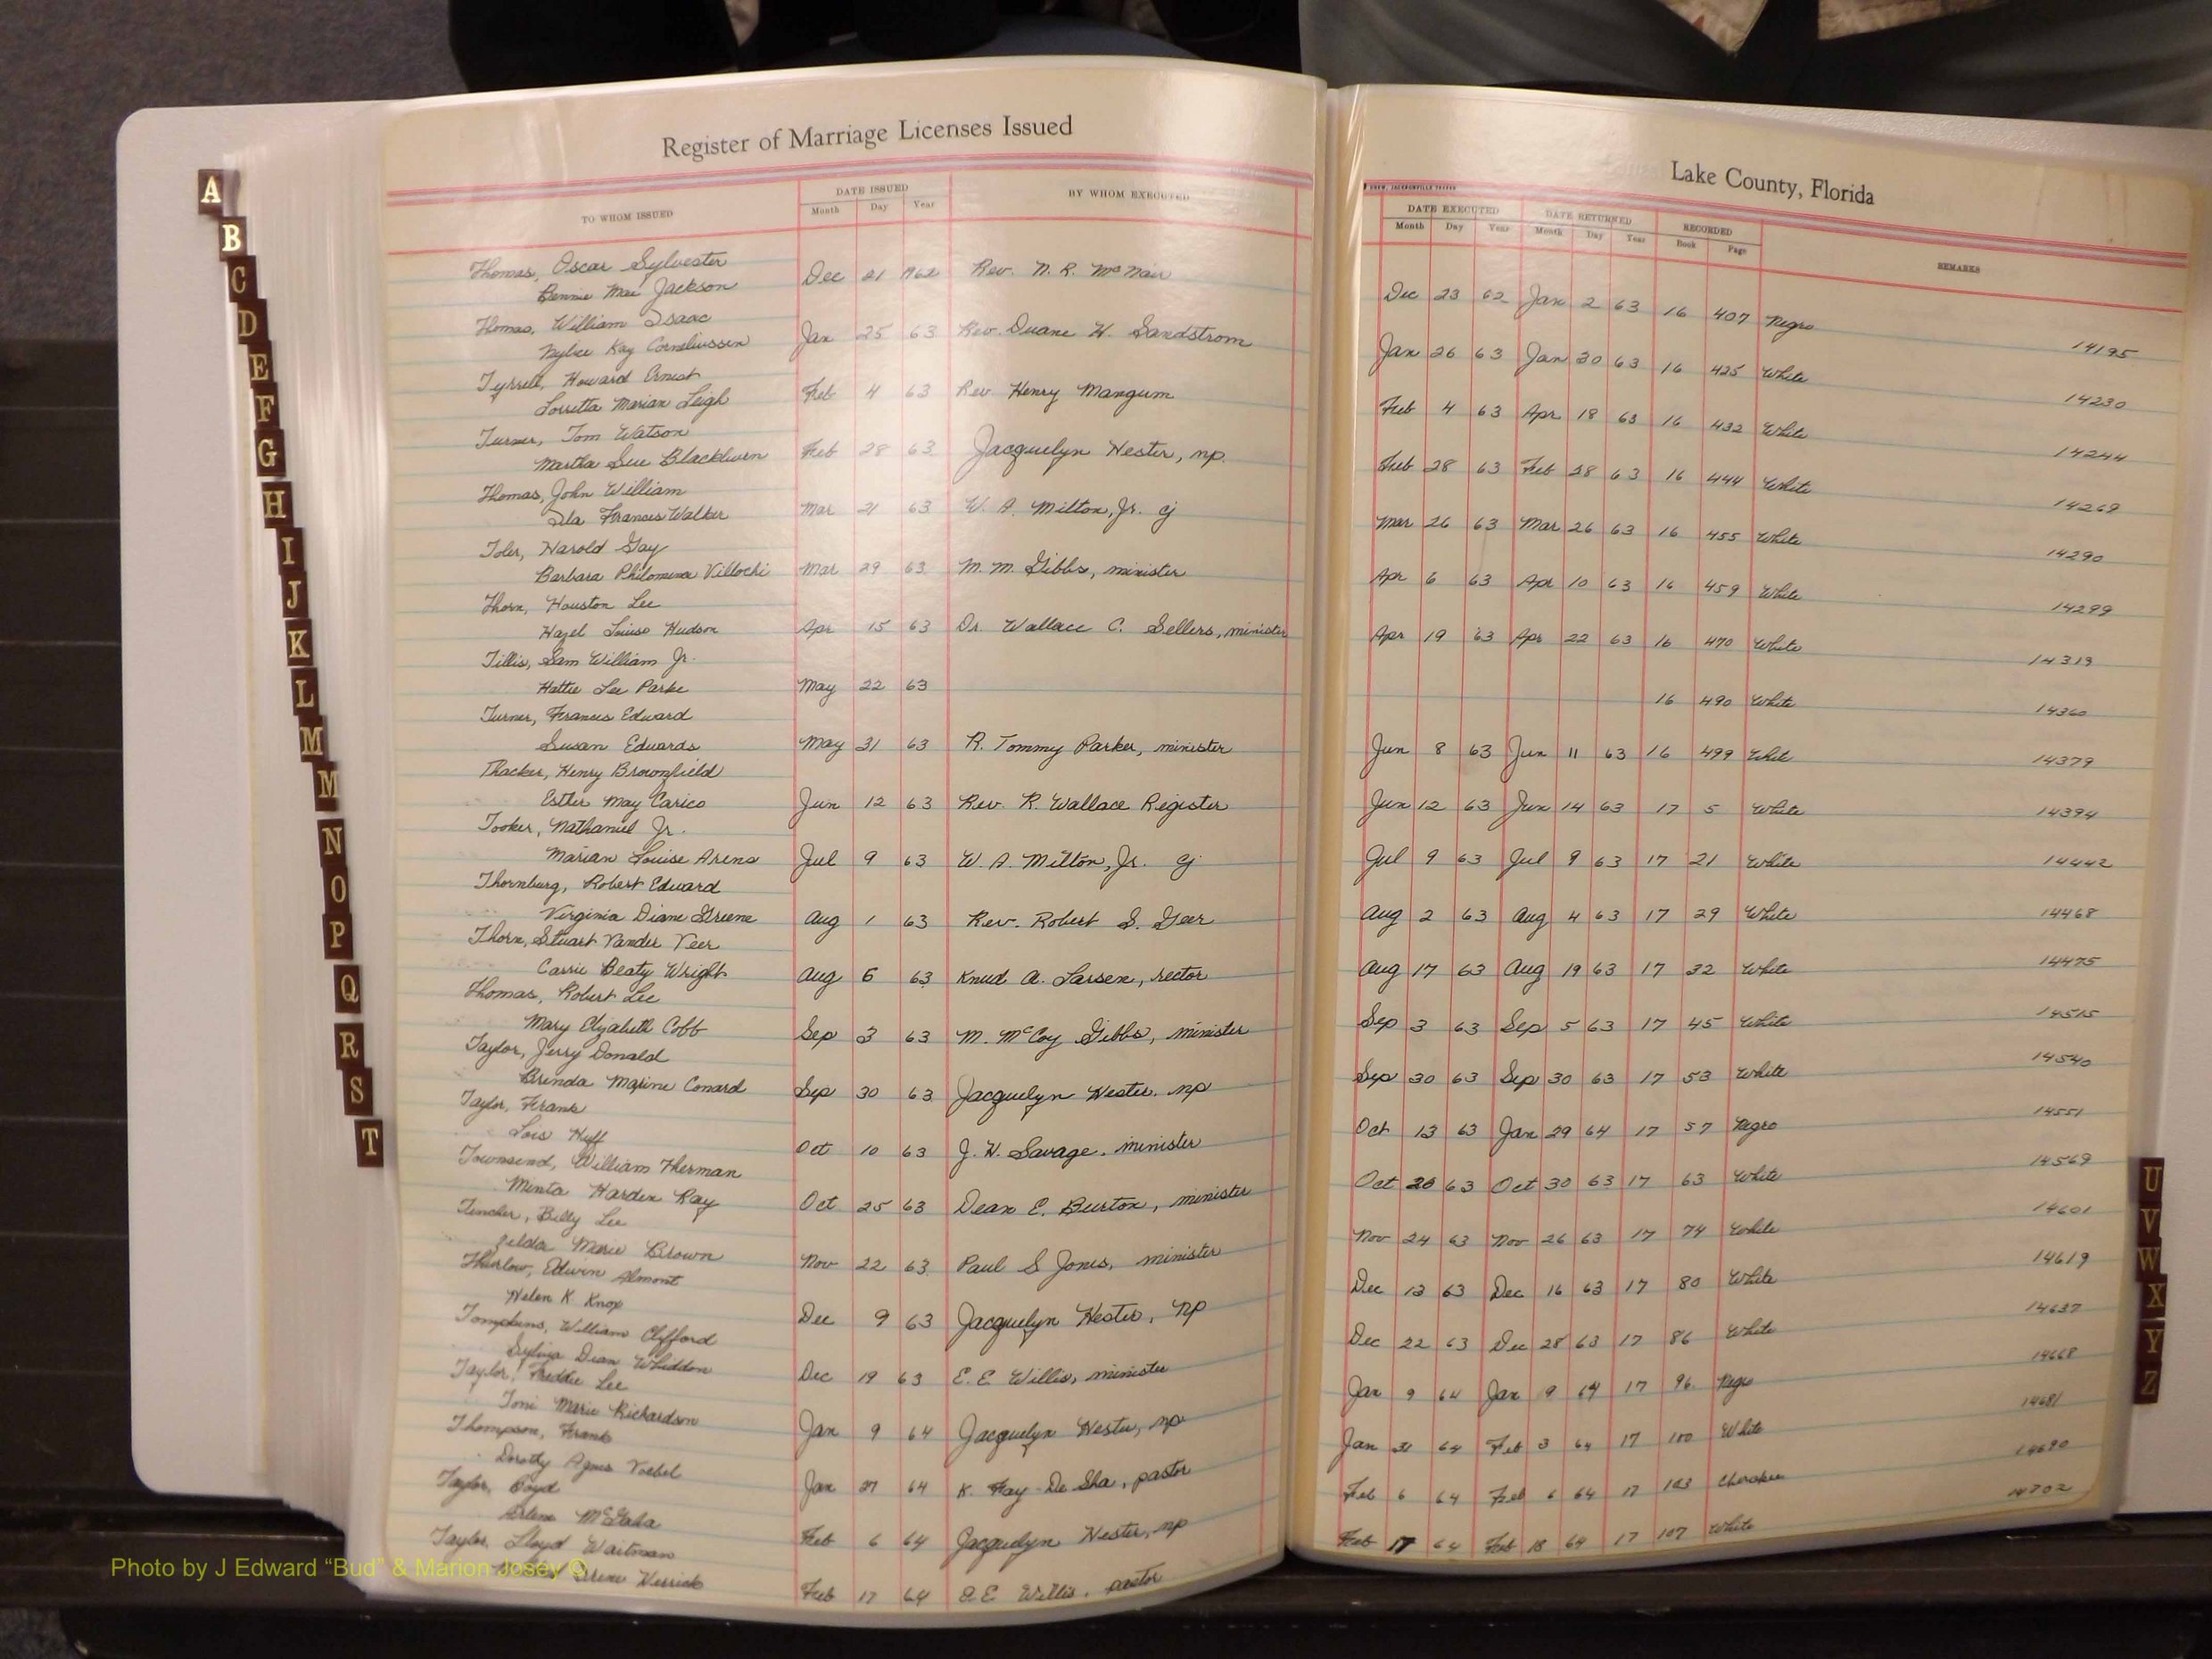 Register of Marriage Licenses Issued
TO WHOM ISSUED DATE ISSUED Month Day Year BY WHOM EXECUTED
Thomas, Oscar Sylvester
Bennie Mae Jackson Dec 21 1962 Rev. N. R. McNair
Thomas, William Isaac
Kay Corneliussen Jan 25 63 Rev. Duane H. Sandstrom
Tyrrell, Howard Ernest
Lorretta Marian Leigh Feb 4 63 Rev Henry Mangum
Turner, Tom Watson
Martha Sue Blackburn Feb 28 63 Jacquelyn Hester, np.
Thomas, John William
Ila Frances Walker Mar 21 63 W. A. Milton, Jr. cj
Toler, Harold Gay
Barbara Philomena Villochi Mar 29 63 M. M. Gibbs, minister
Thorn, Houston Lee
Hazel Louise Hudson Apr 15 63 Dr. Wallace C. Sellers, minister
Tillis, Sam William Jr.
Hattie Lee Parke May 22 63
Turner, Francis Edward
Susan Edwards May 31 63 R. Tommy Parker, minister
Thacker, Henry Brownfield
Esther May Carico Jun 12 63 Rev. R. Wallace Register
Tooker, Nathaniel Jr.
Marian Louise Arens Jul 9 63 W. A. Milton, Jr. cj
Thornburg, Robert Edward
Virginia Diane Greene Aug 1 63 Rev. Robert S. Geer
Thorn, Stuart Vander Veer
Carrie Beaty Wright Aug 6 63 Knud A. Larsen, rector
Thomas, Robert Lee
Mary Elizabeth Cobb Sep 3 63 M. McCoy Gibbs, minister
Taylor, Jerry Donald
Brenda Maxine Conard Sep 30 63 Jacquelyn Hester, np
Taylor, Frank
Lois Huff Oct 10 63 J. H. Savage, minister
Townsend, William Herman
Minta Harden Ray Oct 25 63 Dean E. Burton, minister
Tincher, Billy Lee
Zelda Marie Brown Nov 22 63 Paul S Jones, minister
Thurlow, Edwin Almont
Helen K Knox Dec 9 63 Jacquelyn Hester, np
Tompkins, William Clifford
Sylvia Dean Whiddon Dec 19 63 E. E Willis, minister
Taylor, Freddie Lee
Toni Marie Richardson Jan 9 64 Jacquelyn Hester, np
Thompson, Frank
Dorothy Agnes Voebel Jan 27 64 K. Fay De Sha, pastor
Taylor, Boyd
Arlene McGaha Feb 6 64 Jacquelyn Hester, np
Taylor, Lloyd Waitman
Irene Herrick Feb 17 64 E E Willis, pastor
Lake County, Florida
DREW, JACKSONVILLE
DATE EXECUTED Month Day Year DATE RETURNED Month Day Year RECORDED Book Page REMARKS
Dec 23 62 Jan 2 63 16 407 Negro 14195
Jan 26 63 Jan 30 63 16 425 White 14230
Feb 4 63 Apr 18 63 16 432 White 14244
Feb 28 63 Feb 28 63 16 444 White 14269
Mar 26 63 Mar 26 63 16 455 White 14290
Apr 6 63 Apr 10 63 16 459 White 14299
Apr 19 63 Apr 22 63 16 470 White 14319
16 490 White 14360
Jun 8 63 Jun 11 63 16 499 White 14379
Jun 12 63 Jun 14 63 17 5 White 14394
Jul 9 63 Jul 9 63 17 21 White 14442
Aug 2 63 Aug 4 63 17 29 White 14468
Aug 17 63 Aug 19 63 17 32 White 14475
Sep 3 63 Sep 5 63 17 45 White 14515
Sep 30 63 Sep 30 63 17 53 White 14540
Oct 13 63 Jan 29 64 17 57 Negro 14551
Oct 26 63 Oct 30 63 17 63 White 14569
Nov 24 63 Nov 26 63 17 74 White 14601
Dec 13 63 Dec 16 63 17 80 White 14619
Dec 22 63 Dec 28 63 17 86 White 14637
Jan 9 64 Jan 9 64 17 96 Negro 14668
Jan 31 64 Feb 3 64 17 100 White 14681
Feb 6 64 Feb 6 64 17 103 Cherokee 14690
Feb 17 64 Feb 18 64 17 107 White 14702
A
B
C
D
E
F
G
H
I
J
K
L
M
M
N
O
P
Q
R
S
T
U
V
W
X
Y
Z
Photo by J Edward “Bud” & Marion Josey ©